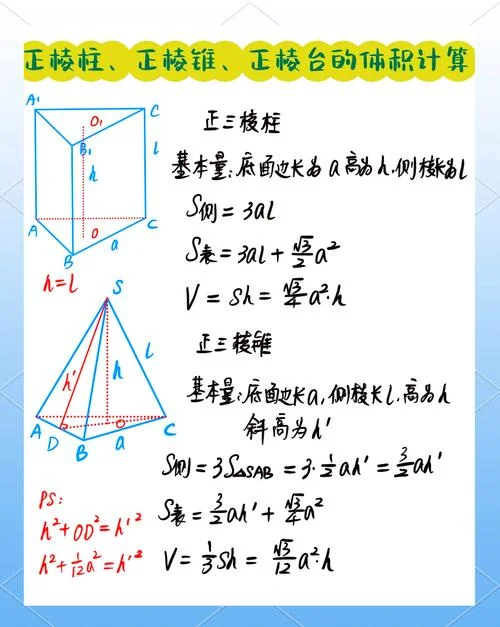 正棱柱、正棱锥、正棱台的体积计算
A₁
C
O₁
B₁
l
h
A
O
C
B
a
h=l
正三棱柱
基本量:底面边长为a高为h,侧棱长为l
S侧=3al
S表=3al+√3/2 a²
V=Sh=√3/4 a²·h
S
h'
h
l
A
D
B
O
a
C
正三棱锥
基本量:底面边长a,侧棱长l,高为h
斜高为h'
S侧=3S△SAB=3·1/2 ah'=3/2 ah'
S表=3/2 ah'+√3/4 a²
V=1/3 Sh=√3/12 a²·h
PS:
h²+OD²=h'²
h²+1/12 a²=h'²